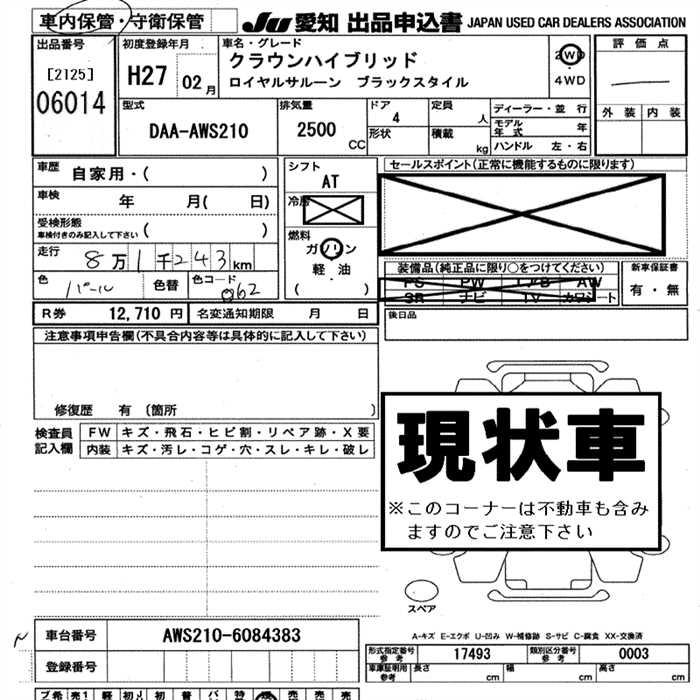 車内保管・守衛保管
JU 愛知 出品申込書 JAPAN USED CAR DEALERS ASSOCIATION
出品番号
[2125]
06014
初度登録年月
H27 02月
車名・グレード
クラウンハイブリッド
ロイヤルサルーン ブラックスタイル
2WD
4WD
評価点
外装 内装
型式
DAA-AWS210
排気量
2500
CC
ドア
4
形状
定員
人
積載
kg
ディーラー・並行
モデル年式 年
ハンドル 左・右
車歴
自家用・( )
車検
年 月( 日)
受検形態
車検付きのみ記入して下さい ( )
走行
8万1千243km
色
パール
色替
色コード
062
シフト
AT
冷房
燃料
ガソリン
軽油
( )
セールスポイント(正常に機能するものに限ります)
装備品(純正品に限り○をつけてください)
PS PW エアB AW
SR ナビ TV カワシート
新車保証書
有・無
R券 12,710円 名変通知期限 月 日
後日品
注意事項申告欄(不具合内容等は具体的に記入して下さい)
修復歴 有 〔箇所 〕
検査員記入欄
FW キズ・飛石・ヒビ割・リペア跡・X要
内装 キズ・汚レ・コゲ・穴・スレ・キレ・破レ
現状車
※このコーナーは不動車も含み
ますのでご注意下さい
スペア
A-キズ E-エクボ U-凹み W-補修跡 S-サビ C-腐食 XX-交換済
車台番号 AWS210-6084383
登録番号
形式指定番号 参考 17493 類別区分番号 参考 0003
車庫証明用 参考 長さ cm 幅 cm 高さ cm